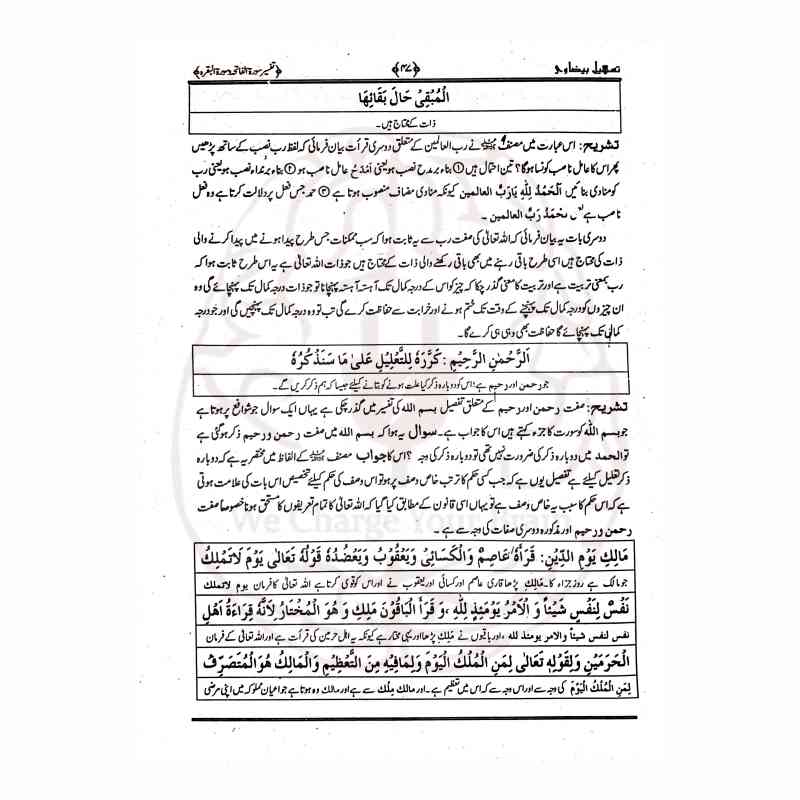 تسهيل بيضاوى ﴿۴۷﴾ ﴿تفسیر سورۃ الفاتحہ وسورۃ البقرہ﴾
اَلْمُبْقِیْ حَالَ بَقَائِهَا
ذات کے محتاج ہیں۔
تشریح: اس عبارت میں مصنف نے رب العالمین کے متعلق دوسری قرأت بیان فرمائی کہ لفظ رب نصب کے ساتھ پڑھیں
پھر اس کا عامل ناصب کونسا ہوگا؟ تین احتمال ہیں ① بناء بر مدح نصب ہو یعنی اَمْدَحُ عامل ناصب ہو ② بناء بر نداء نصب ہو یعنی رب
کو منادی بنائیں اَلْحَمْدُ لِلّٰهِ یَارَبَّ العالمین کیونکہ منادی مضاف منصوب ہوتا ہے ③ حمد جس فعل پر دلالت کرتا ہے وہ فعل
ناصب ہے نَحْمَدُ رَبَّ العالمین ۔
دوسری بات یہ بیان فرمائی کہ اللہ تعالیٰ کی صفت رب سے یہ ثابت ہوا کہ سب ممکنات جس طرح پیدا ہونے میں پیدا کرنے والی
ذات کی محتاج ہیں اسی طرح باقی رہنے میں بھی باقی رکھنے والی ذات کے محتاج ہیں جو ذات اللہ تعالیٰ ہے یہ اس طرح ثابت ہوا کہ
رب بمعنی تربیت ہے اور تربیت کا معنی گذر چکا کہ چیز کو اس کے درجہ کمال تک آہستہ آہستہ پہنچانا تو جو ذات درجہ کمال تک پہنچائے گی وہ
ان چیزوں کو درجہ کمال تک پہنچنے کے وقت تک ختم ہونے اور خرابت سے حفاظت کرے گی تب تو وہ درجہ کمال تک پہنچیں گی اور جو درجہ
کمال تک پہنچائے گا حفاظت بھی وہی ہی کرے گا۔
اَلرَّحْمٰنِ الرَّحِیْمِ : کَرَّرَهٗ لِلتَّعْلِیْلِ عَلیٰ مَا سَنَذْکُرُهٗ
جو رحمن اور رحیم ہے؛ اس کو دوبارہ ذکر کیا علت ہونے کو بتانے کیلئے جیسا کہ ہم ذکر کریں گے۔
تشریح: صفت رحمن اور رحیم کے متعلق تفصیل بسم الله کی تفسیر میں گذر چکی ہے یہاں ایک سوال جو شوافع پر ہوتا ہے
جو بسم الله کو سورت کا جزء کہتے ہیں اس کا جواب ہے۔ سوال یہ ہوا کہ بسم الله میں صفت رحمن و رحیم ذکر ہو گئی ہے
تو الحمد میں دوبارہ ذکر کی ضرورت نہیں تھی تو دوبارہ ذکر کی وجہ ؟ اس کا جواب مصنف کے الفاظ میں مختصر یہ ہے کہ دوبارہ
ذکر تعلیل کیلئے ہے تفصیل یوں ہے کہ جب کسی حکم کا ترتب خاص وصف پر ہو تو اس وصف کی حکم کیلئے تخصیص اس بات کی علامت ہوتی
ہے کہ اس حکم کا سبب یہ خاص وصف ہے تو یہاں اسی قانون کے مطابق کیا گیا کہ اللہ تعالیٰ کا تمام تعریفوں کا مستحق ہونا خصوصاً صفت
رحمن و رحیم اور مذکورہ دوسری صفات کی وجہ سے ہے ۔
مَالِكِ یَوْمِ الدِّیْنِ: قَرَأَهٗ عَاصِمٌ وَالْکَسَائِیُّ وَیَعْقُوْبُ وَیَعْضُدُهٗ قَوْلُهٗ تَعَالٰی یَوْمَ لَاتَمْلِكُ
جو مالک ہے روز جزاء کا۔ مَالِكِ پڑھا قاری عاصم اور کسائی اور یعقوب نے اور اس کو قوی کرتا ہے اللہ تعالیٰ کا فرمان یوم لاتملك
نَفْسٌ لِنَفْسٍ شَیْئاً وَ الْاَمْرُ یَوْمَئِذٍ لِلّٰهِ ،وَ قَرَأَ الْبَاقُوْنَ مَلِكِ وَ هُوَ الْمُخْتَارُ لِاَنَّهٗ قِرَاءَةُ اَهْلِ
نفس لنفس شيئاً والامر يومئذ لله ، اور باقیوں نے مَلِكِ پڑھا اور یہی مختار ہے کیونکہ یہ اہل حرمین کی قرأت ہے اور اللہ تعالیٰ کے فرمان
الْحَرَمَیْنِ وَلِقَوْلِهٖ تَعَالٰی لِمَنِ الْمُلْكُ الْیَوْمَ وَلِمَافِیْهِ مِنَ التَّعْظِیْمِ وَالْمَالِكُ هُوَالْمُتَصَرِّفُ
لِمَنِ الْمُلْكُ الْیَوْمَ کی وجہ سے اور اس وجہ سے کہ اس میں تعظیم ہے۔ اور مالك مِلْك سے ہے اور مالك وہ ہوتا ہے جو اعیان مملوکہ میں اپنی مرضی
We Charge Your